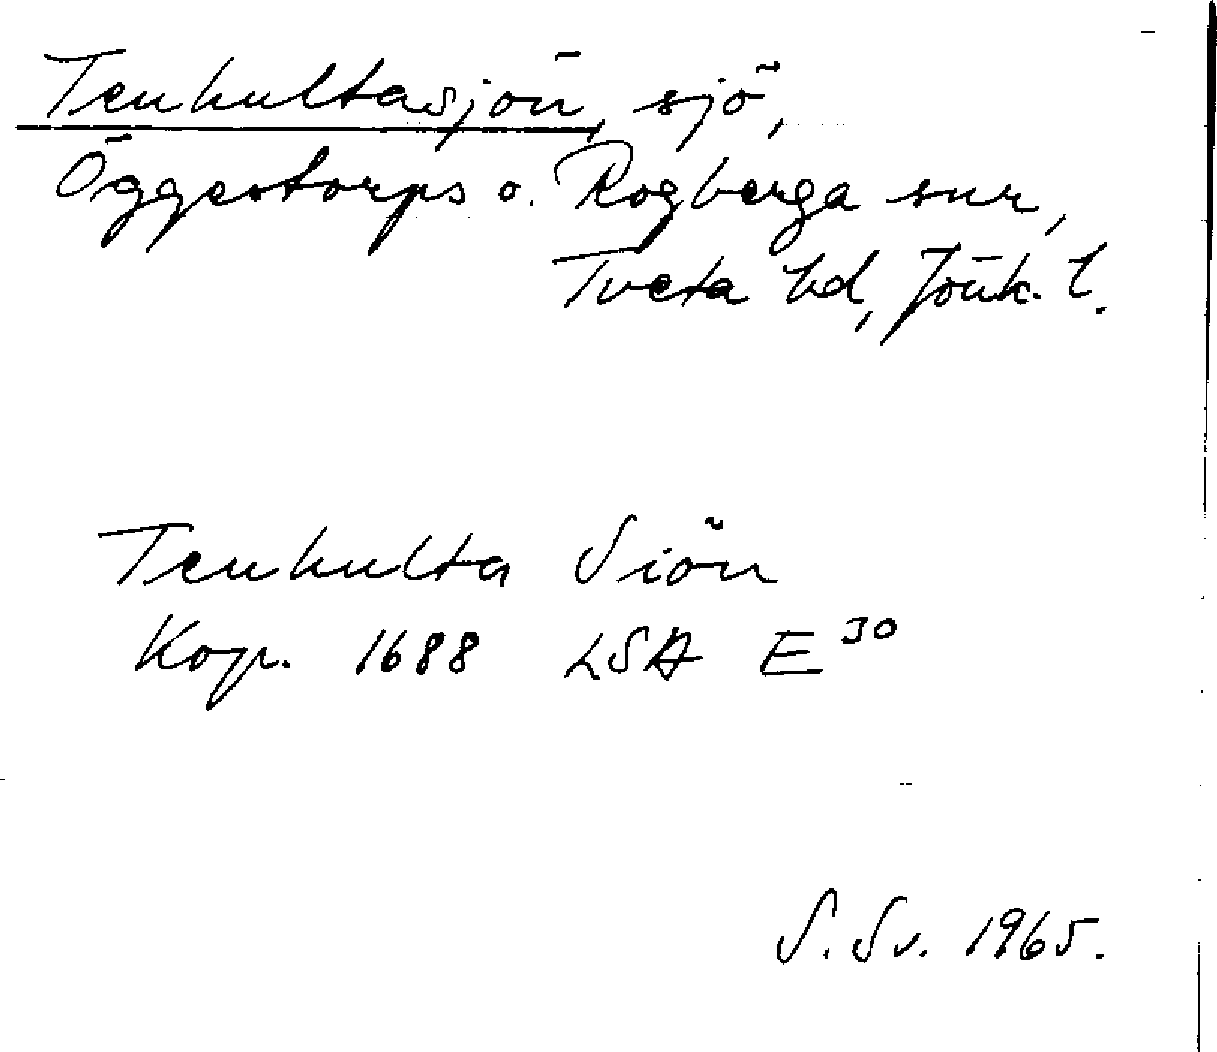 Tenhultasjön, sjö,
Öggestorps o. Rogberga snr,
Tveta hd, Jönk. l.
Tenhulta Siön
Kop. 1688 LSA E30
S. Sv. 1965.